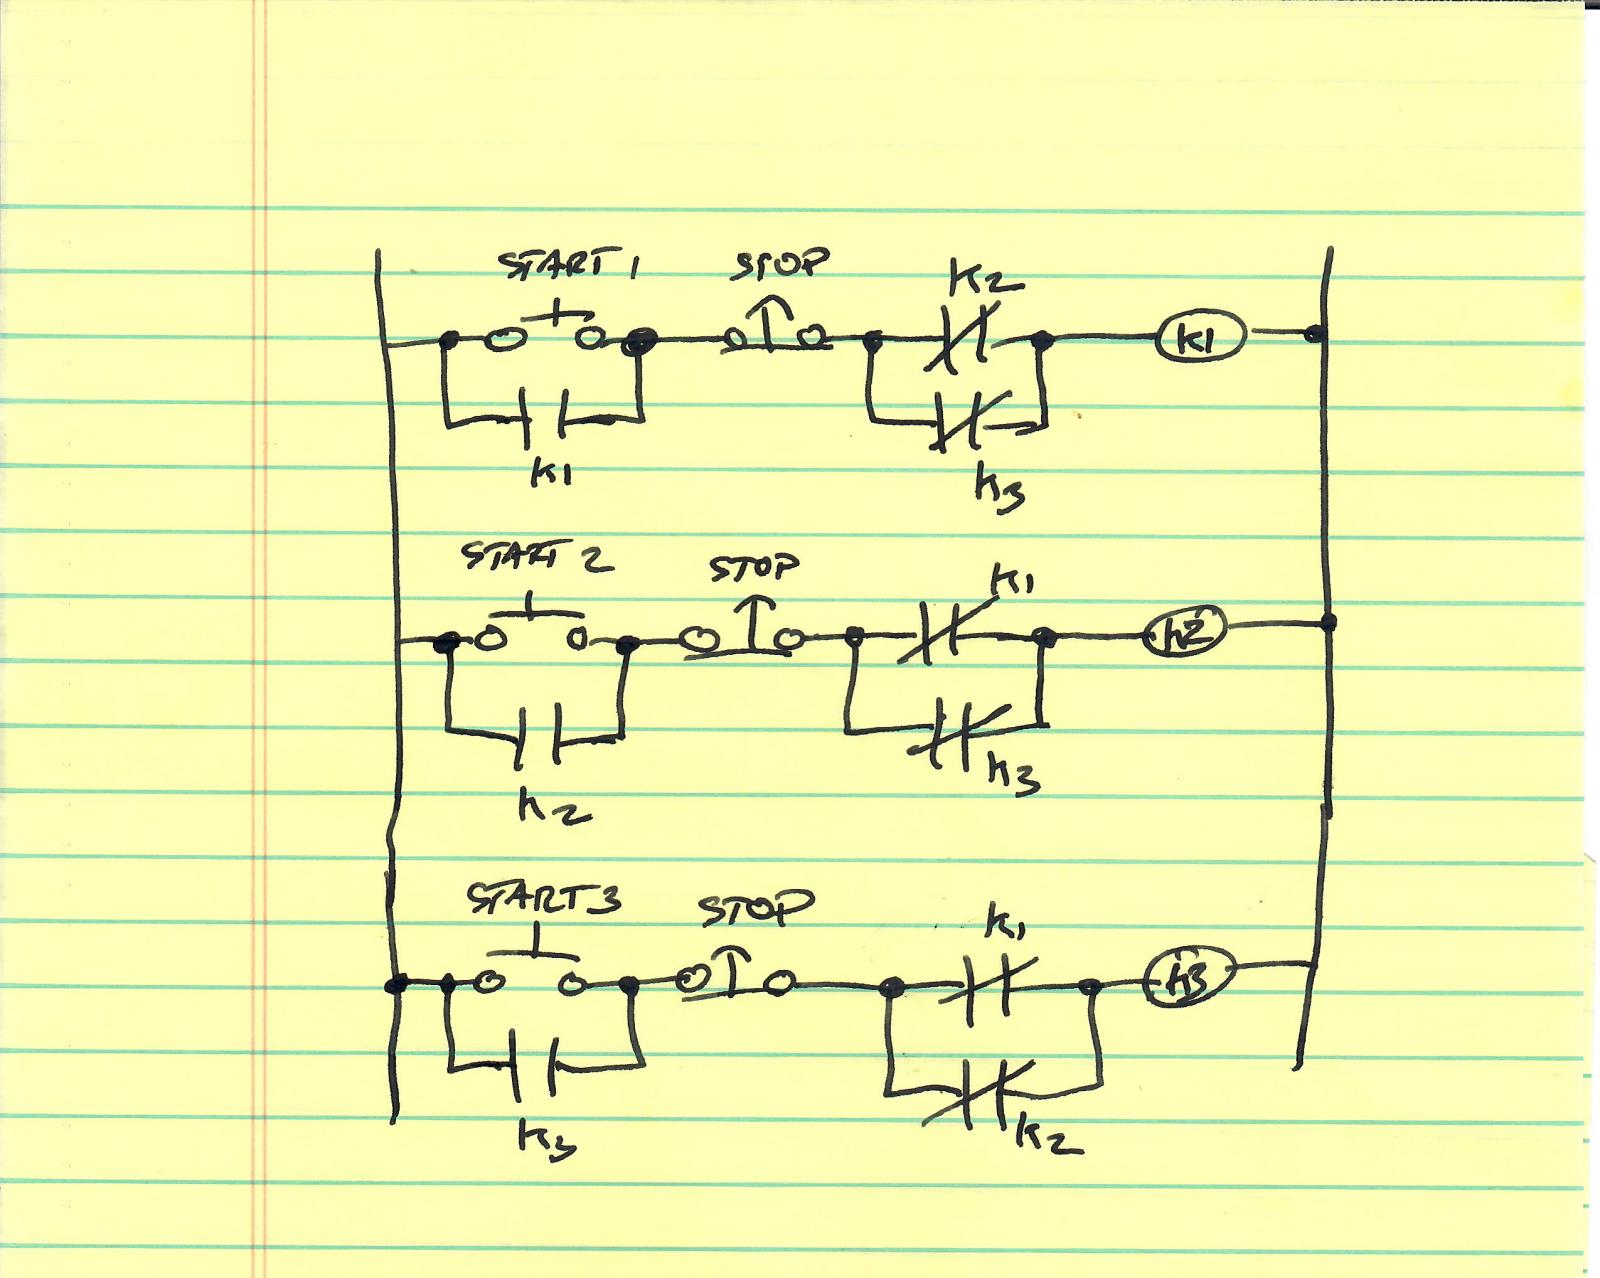 START 1 STOP K2
K1
K1
K3
START 2 STOP K1
K2
K3
K2
START 3 STOP K1
K3
K3
K2